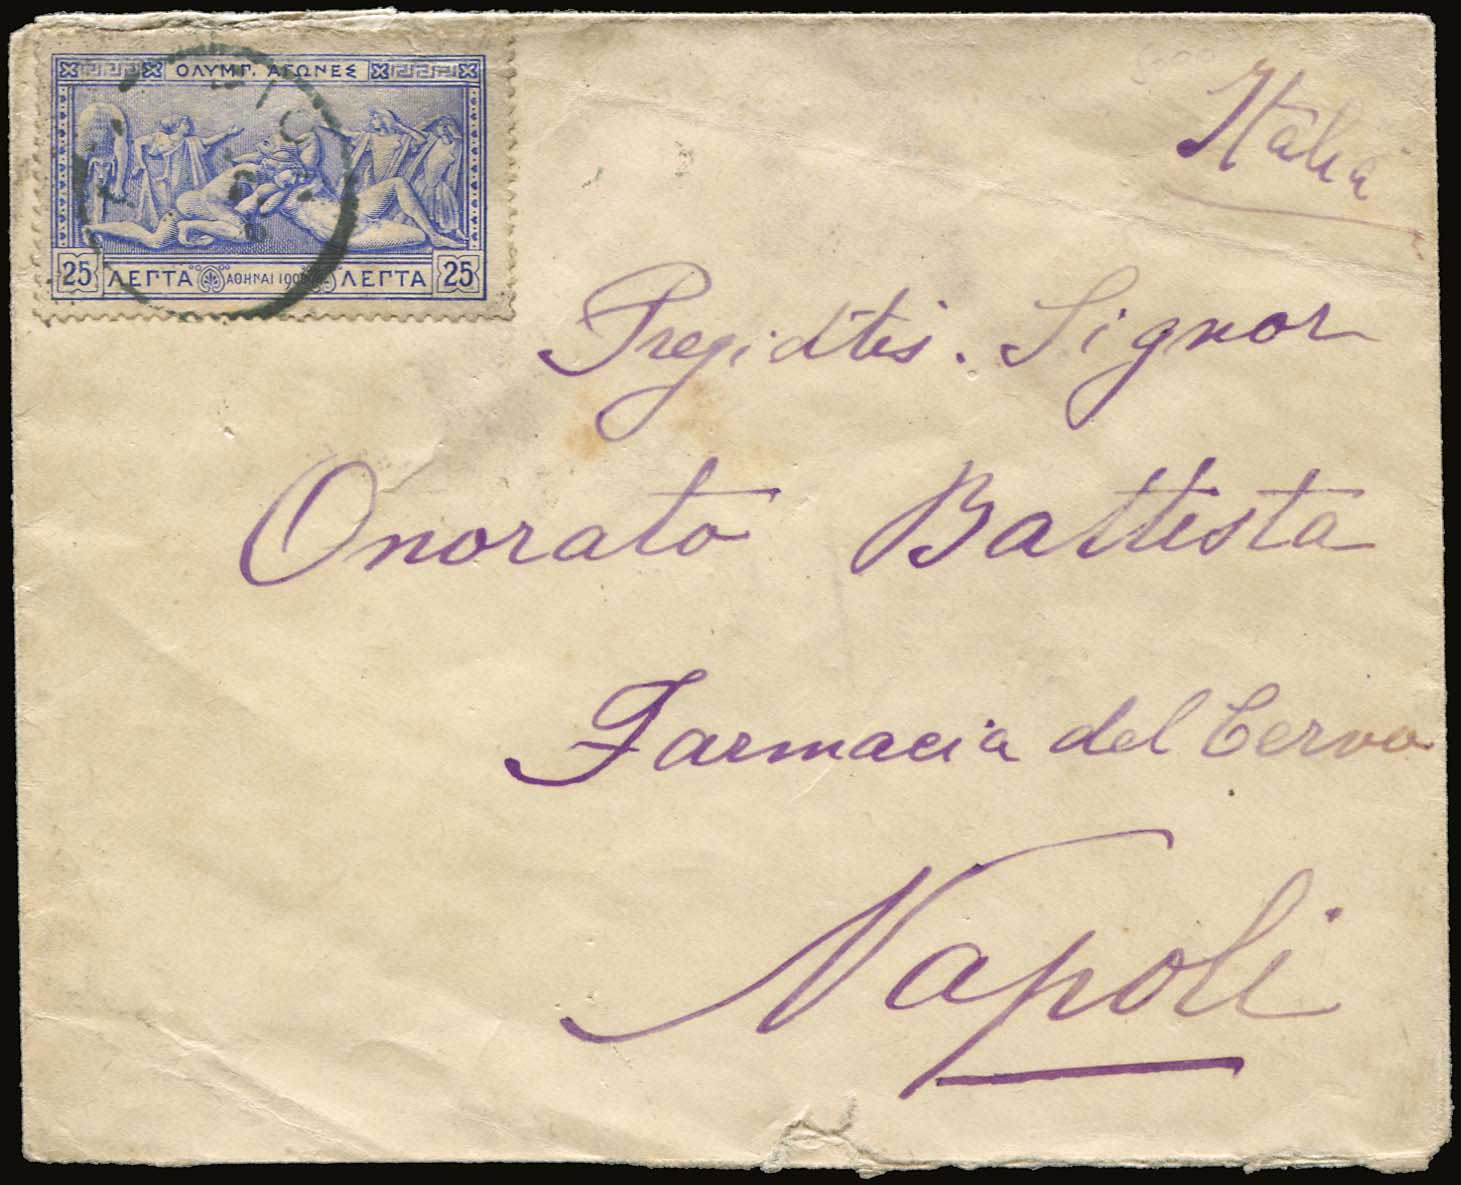 ΟΛΥΜΠ. ΑΓΩΝΕΣ
25 ΛΕΠΤΑ ΑΘΗΝΑΙ 1906 ΛΕΠΤΑ 25
Italia
Signor
Onorato Battista
Farmacia del Cervo
Napoli